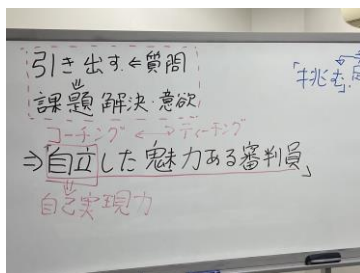 引き出す⇐質問
課題解決・意欲
「挑む」
コーチング ←→ ティーチング
⇒「自立した魅力ある審判員」
自己実現力